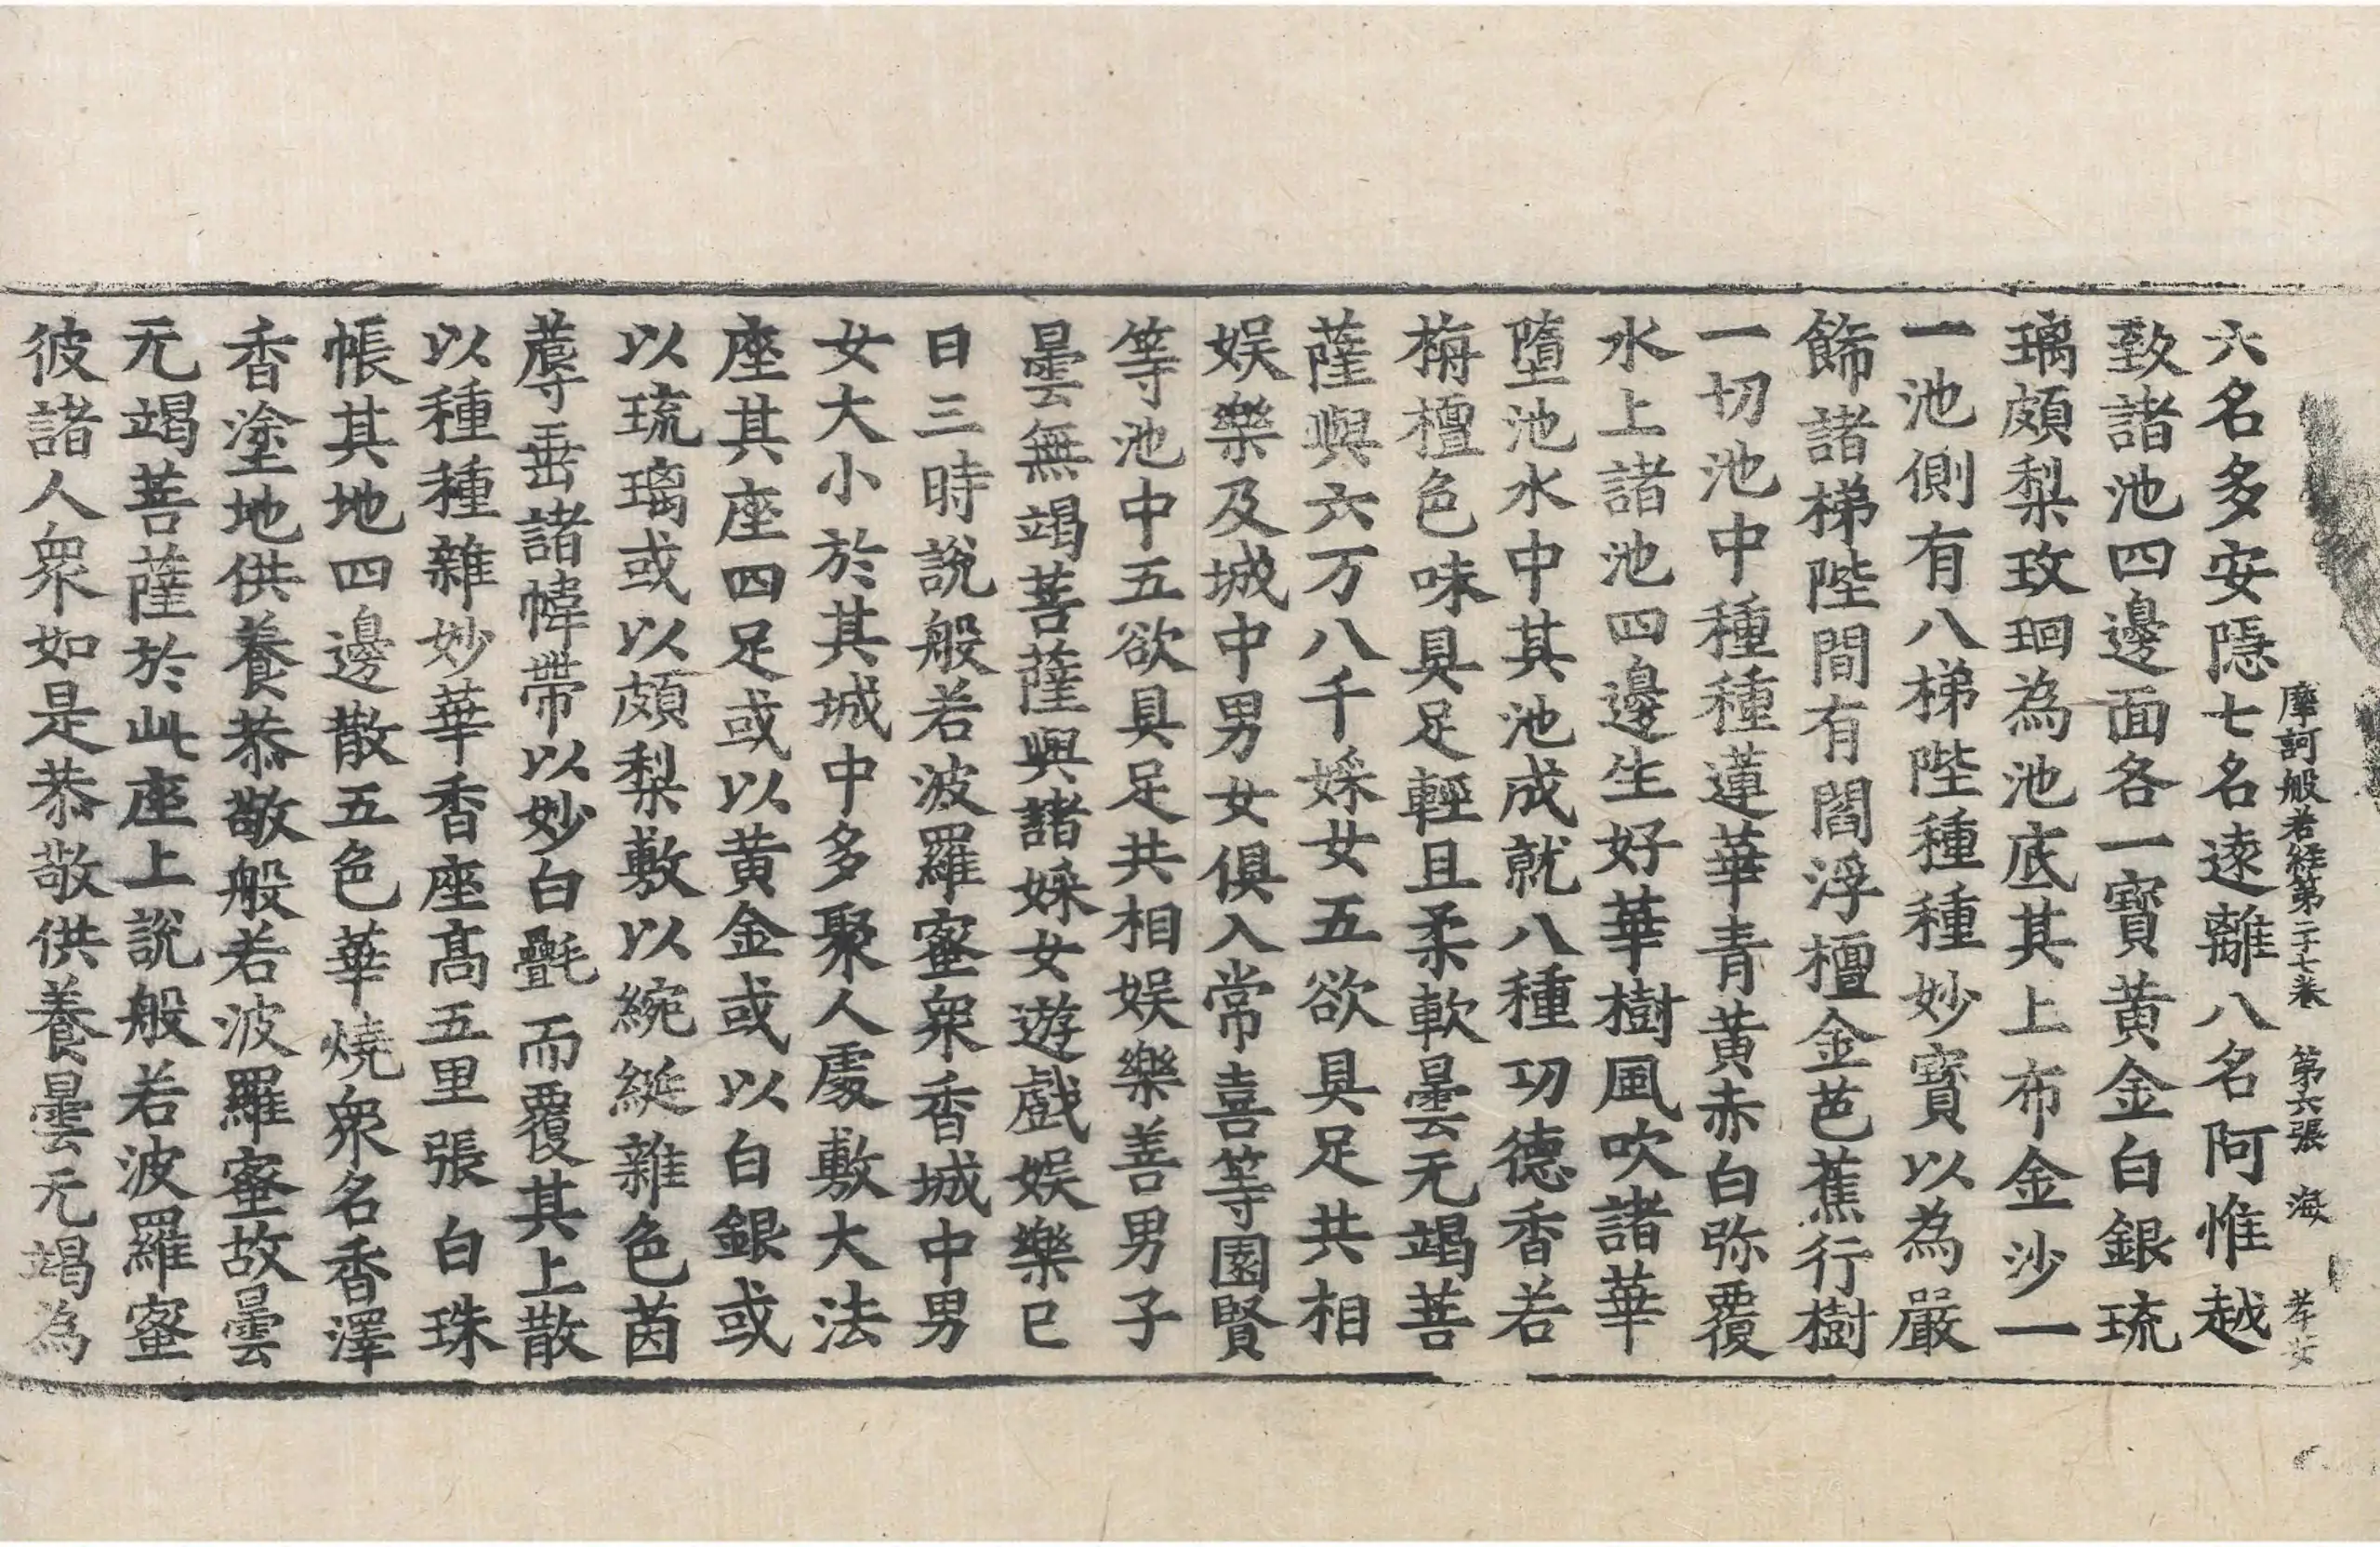 摩訶般若経第二十七卷 第六張 海 孝安
六名多安隱七名遠離八名阿惟越
致諸池四邊面各一寶黃金白銀琉
璃頗梨玫瑰為池底其上布金沙一
一池側有八梯陛種種妙寶以為嚴
飾諸梯陛間有閻浮檀金芭蕉行樹
一切池中種種蓮華青黃赤白弥覆
水上諸池四邊生好華樹風吹諸華
墮池水中其池成就八種功德香若
栴檀色味具足輕且柔軟曇无竭菩
薩與六万八千婇女五欲具足共相
娱樂及城中男女俱入常喜等園賢
等池中五欲具足共相娱樂善男子
曇無竭菩薩與諸婇女遊戲娱樂已
日三時說般若波羅蜜衆香城中男
女大小於其城中多聚人處敷大法
座其座四足或以黃金或以白銀或
以琉璃或以頗梨敷以綩綖雜色茵
蓐垂諸幃帶以妙白㲲而覆其上散
以種種雜妙華香座髙五里張白珠
帳其地四邊散五色華燒衆名香澤
香塗地供養恭敬般若波羅蜜故曇
无竭菩薩於此座上說般若波羅蜜
彼諸人衆如是恭敬供養曇无竭為